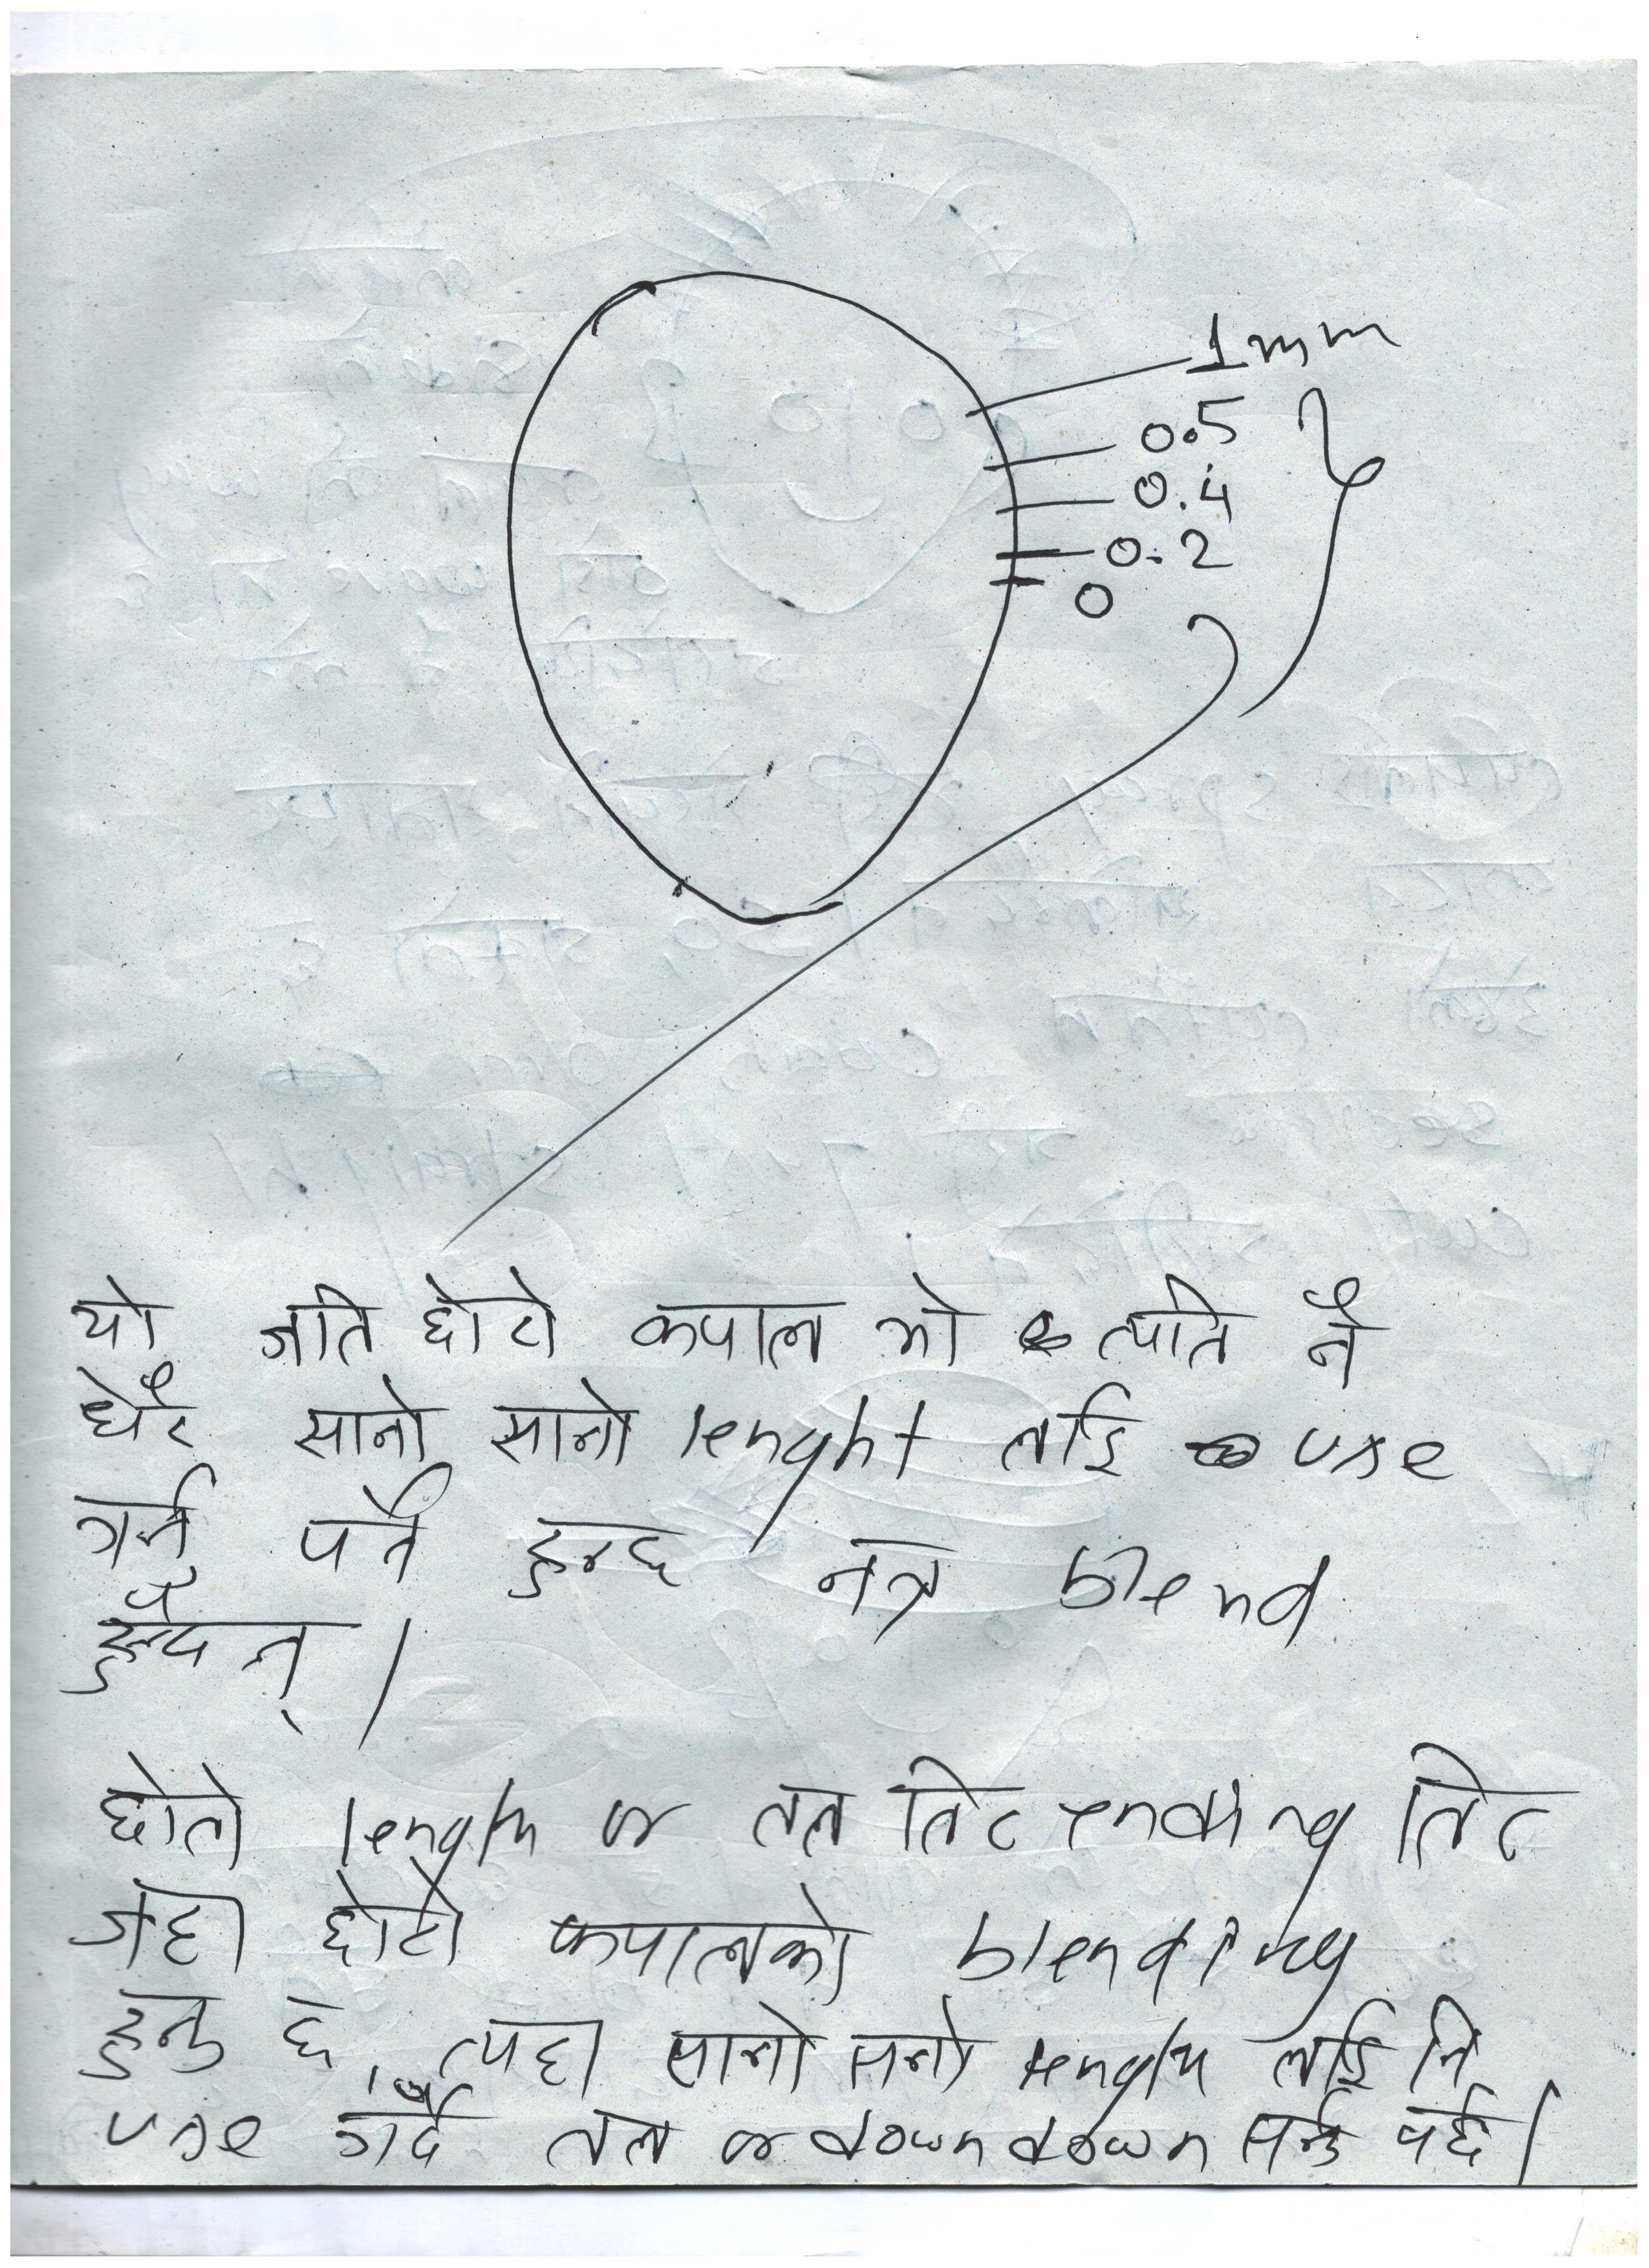 1mm
0.5
0.4
0.2
0
यो जति छोटो कपाल भो त्यति नै
धेरै सानो सानो lenght लाई use
गर्नु पर्ने हुन्छ नत्र blend
हुँदैन् ।
छोटो length or तल तिर ending तिर
जहा छोटो कपालको blending
हुनु छ, त्यहा सानो सानो length लाई नि
use गर्दै तल or down down सर्नु पर्छ ।